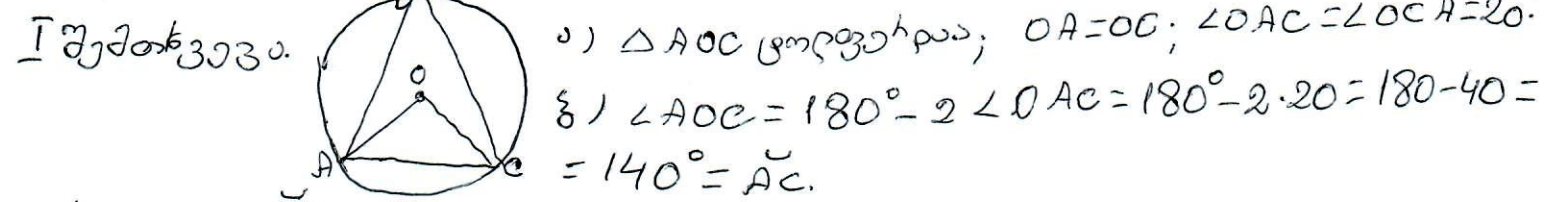 I შემთხვევა.
O
A
C
ა) △AOC ტოლფერდაა; OA=OC; ∠OAC=∠OCA=20.
ბ) ∠AOC = 180° - 2∠OAC = 180° - 2·20 = 180-40 =
= 140° = A͝C.